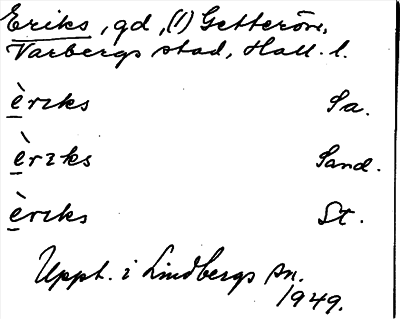 Eriks, gd, (1) Getterön,
Varbergs stad, Hall. l.
è̲rɩks Sa.
è̲rɩks Sand.
è̲rɩks St.
Uppt. i Lindbergs sn.
1949.